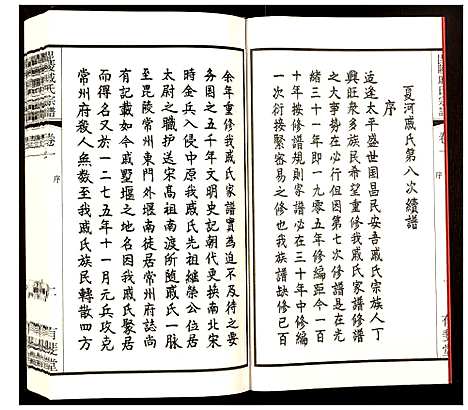 夏河戚氏第八次續譜
序
近逢太平盛世国昌民安吾戚氏宗族人丁
興旺衆多族民希望重修我戚氏家譜是族中
之大事勢在必行但因第七次修譜是在光
緒三十一年即一九零五年修編距今一百
十年按修譜規則家譜必在三十年中修編
一次衍接繁容易之修也我族譜缺修已百
余年度重修我戚氏家譜實為及不待之要
務图之五千年文明史记朝代更换南北宋
時金兵入侵中原我戚氏先祖继榮公位居
太尉之職护送宋高祖南渡所随戚氏一脉
至毘陵常州東門外堰南徒居常州府誌尚
有記載如今戚墅堰之地名因我戚氏聚居
而得名又一二七五年十一月元兵攻克
常州府殺人無数至我戚氏族民轉散四方
戚氏宗譜
卷一
序
有嬰堂